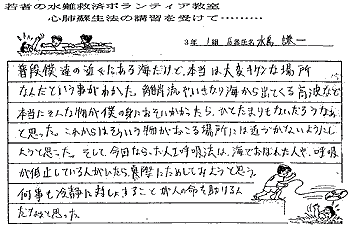 若者の水難救済ボランティア教室
心肺蘇生法の講習を受けて………
3年 1組 氏名 水島 謙一
普段僕達の近くにある海だけど、本当は大変キケンな場所
なんだという事がわかった。離岸流やいきなり海から出てくる高波など
本当にそんな物が僕の身におそいかかったら、ひとたまりもないだろうなぁ
と思った。これからはそういう物がおこる場所には近づかないようにし
ようと思った。そして、今回ならった人工呼吸法は、海でおぼれた人や、呼吸
が停止している人がいたら、実際にためしてみようと思う。
何事も冷静に対しょすることが人の命を助けるん
だなぁと思った。